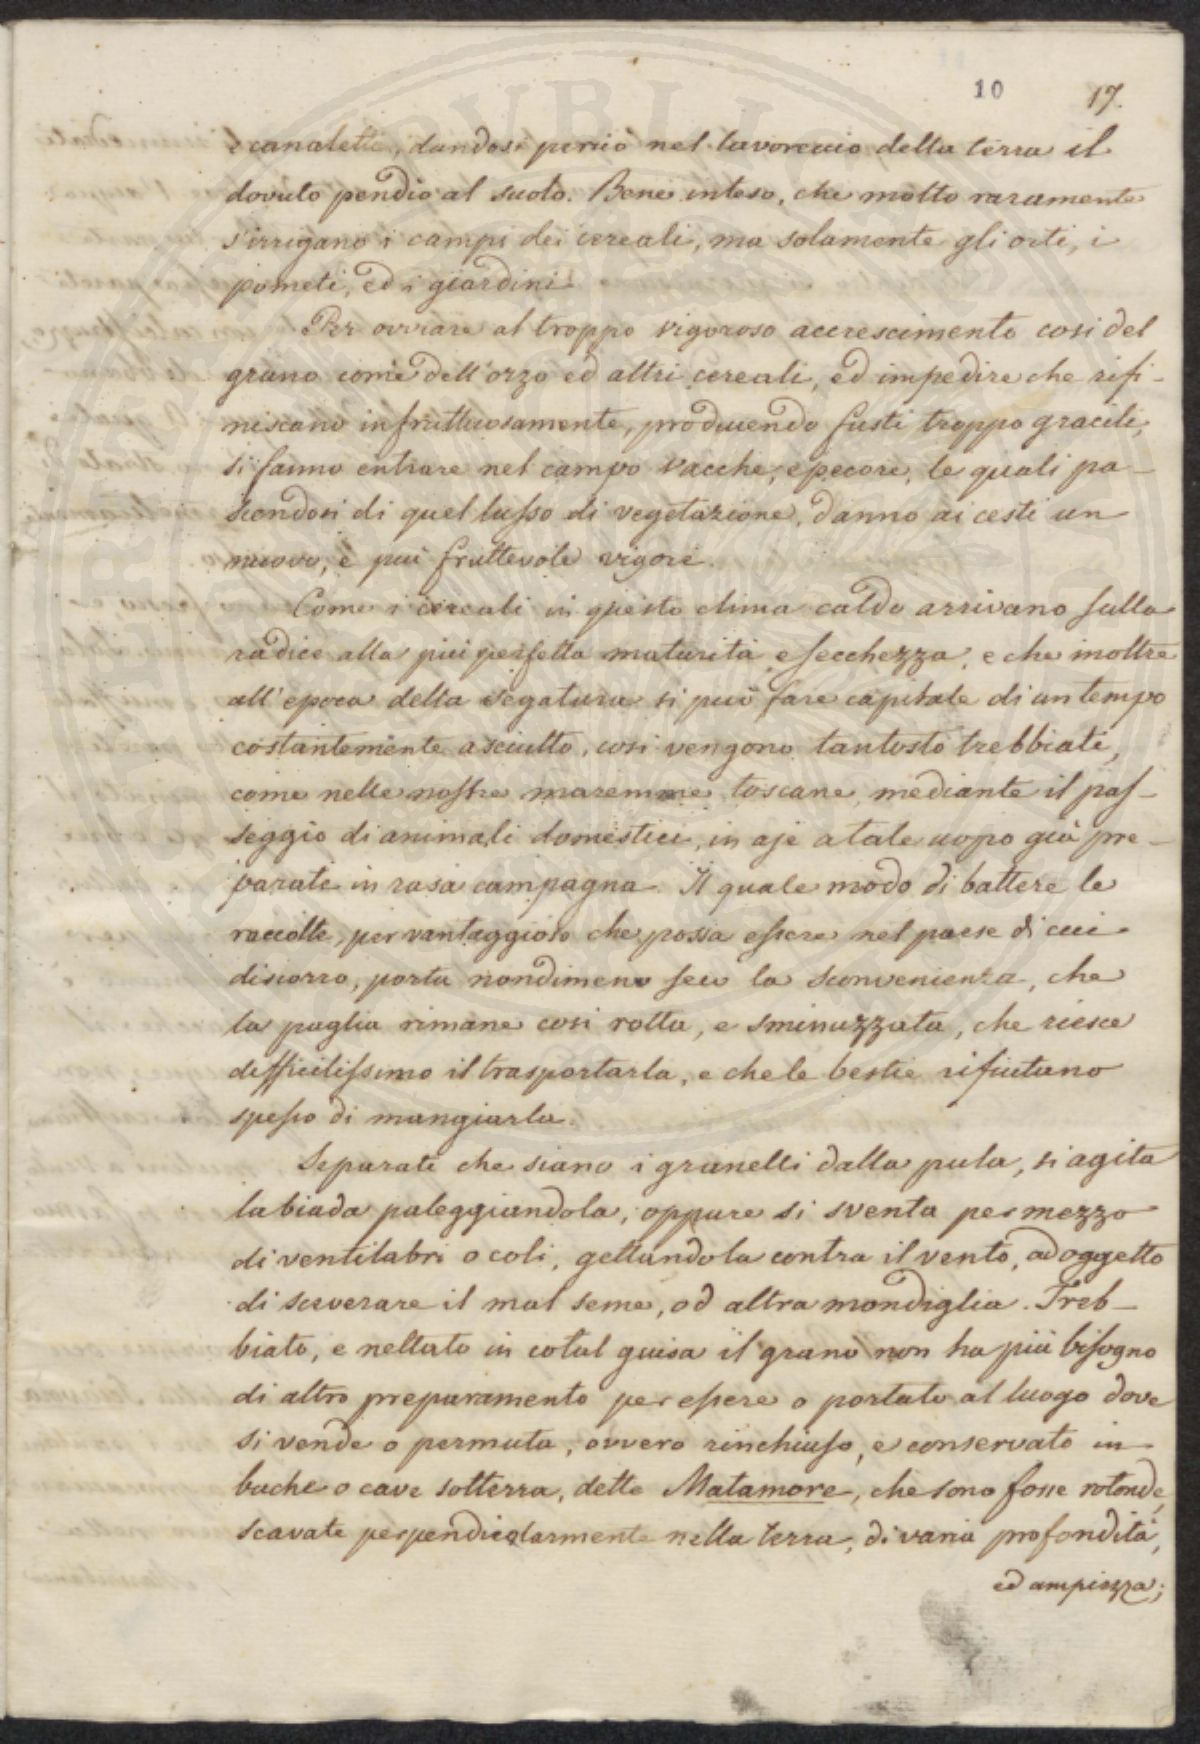 10 17.
e canaletti, dandosi perciò nel lavoreccio della terra il
dovuto pendio al suolo. Bene inteso, che molto raramente
s'irrigano i campi dei cereali, ma solamente gli orti, i
pometi, ed i giardini.
Per ovviare al troppo vigoroso accrescimento così del
grano come dell'orzo ed altri cereali, ed impedire che rifi-
niscano infruttuosamente, producendo fusti troppo gracili,
si fanno entrare nel campo vacche, e pecore, le quali pa-
scendosi di quel lusso di vegetazione, danno ai cesti un
nuovo, e più fruttevole vigore.
Come i cereali in questo clima caldo arrivano sulla
radice alla più perfetta maturità e secchezza, e che inoltre
all'epoca della segatura si può fare capitale di un tempo
costantemente asciutto, così vengono tantosto trebbiati,
come nelle nostre maremme toscane, mediante il pas-
seggio di animali domestici, in aje a tale uopo già pre-
parate in rasa campagna. Il quale modo di battere le
raccolte, per vantaggioso che possa essere nel paese di cui
discorro, porta nondimeno seco la sconvenienza, che
la paglia rimane così rotta, e sminuzzata, che riesce
difficilissimo il trasportarla, e che le bestie rifiutano
spesso di mangiarla.
Separati che siano i granelli dalla pula, si agita
la biada paleggiandola, oppure si sventa per mezzo
di ventilabri o coli, gettandola contra il vento, ad oggetto
di sceverare il mal seme, od altra mondiglia. Treb-
biato, e nettato in cotal guisa il grano non ha più bisogno
di altro preparamento per essere o portato al luogo dove
si vende o permuta, ovvero rinchiuso, e conservato in
buche o cave sotterra, dette Matamore, che sono fosse rotonde,
scavate perpendicolarmente nella terra, di varia profondità,
ed ampiezza;